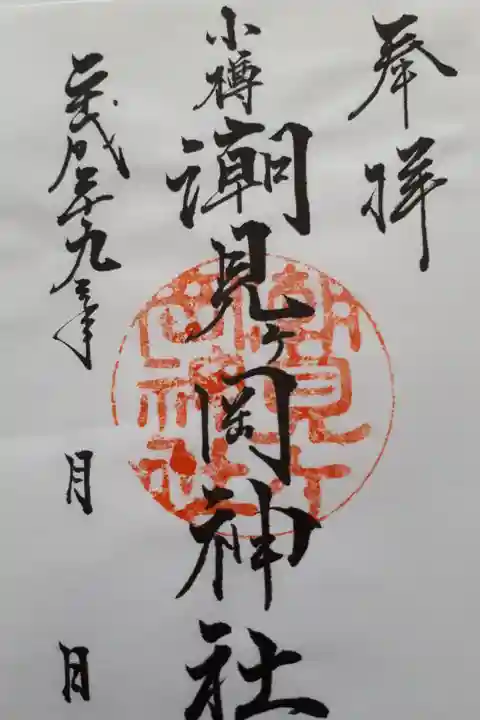 奉拝
小樽
潮見ヶ岡神社
平成二十九年 月 日
潮見ヶ
岡神社